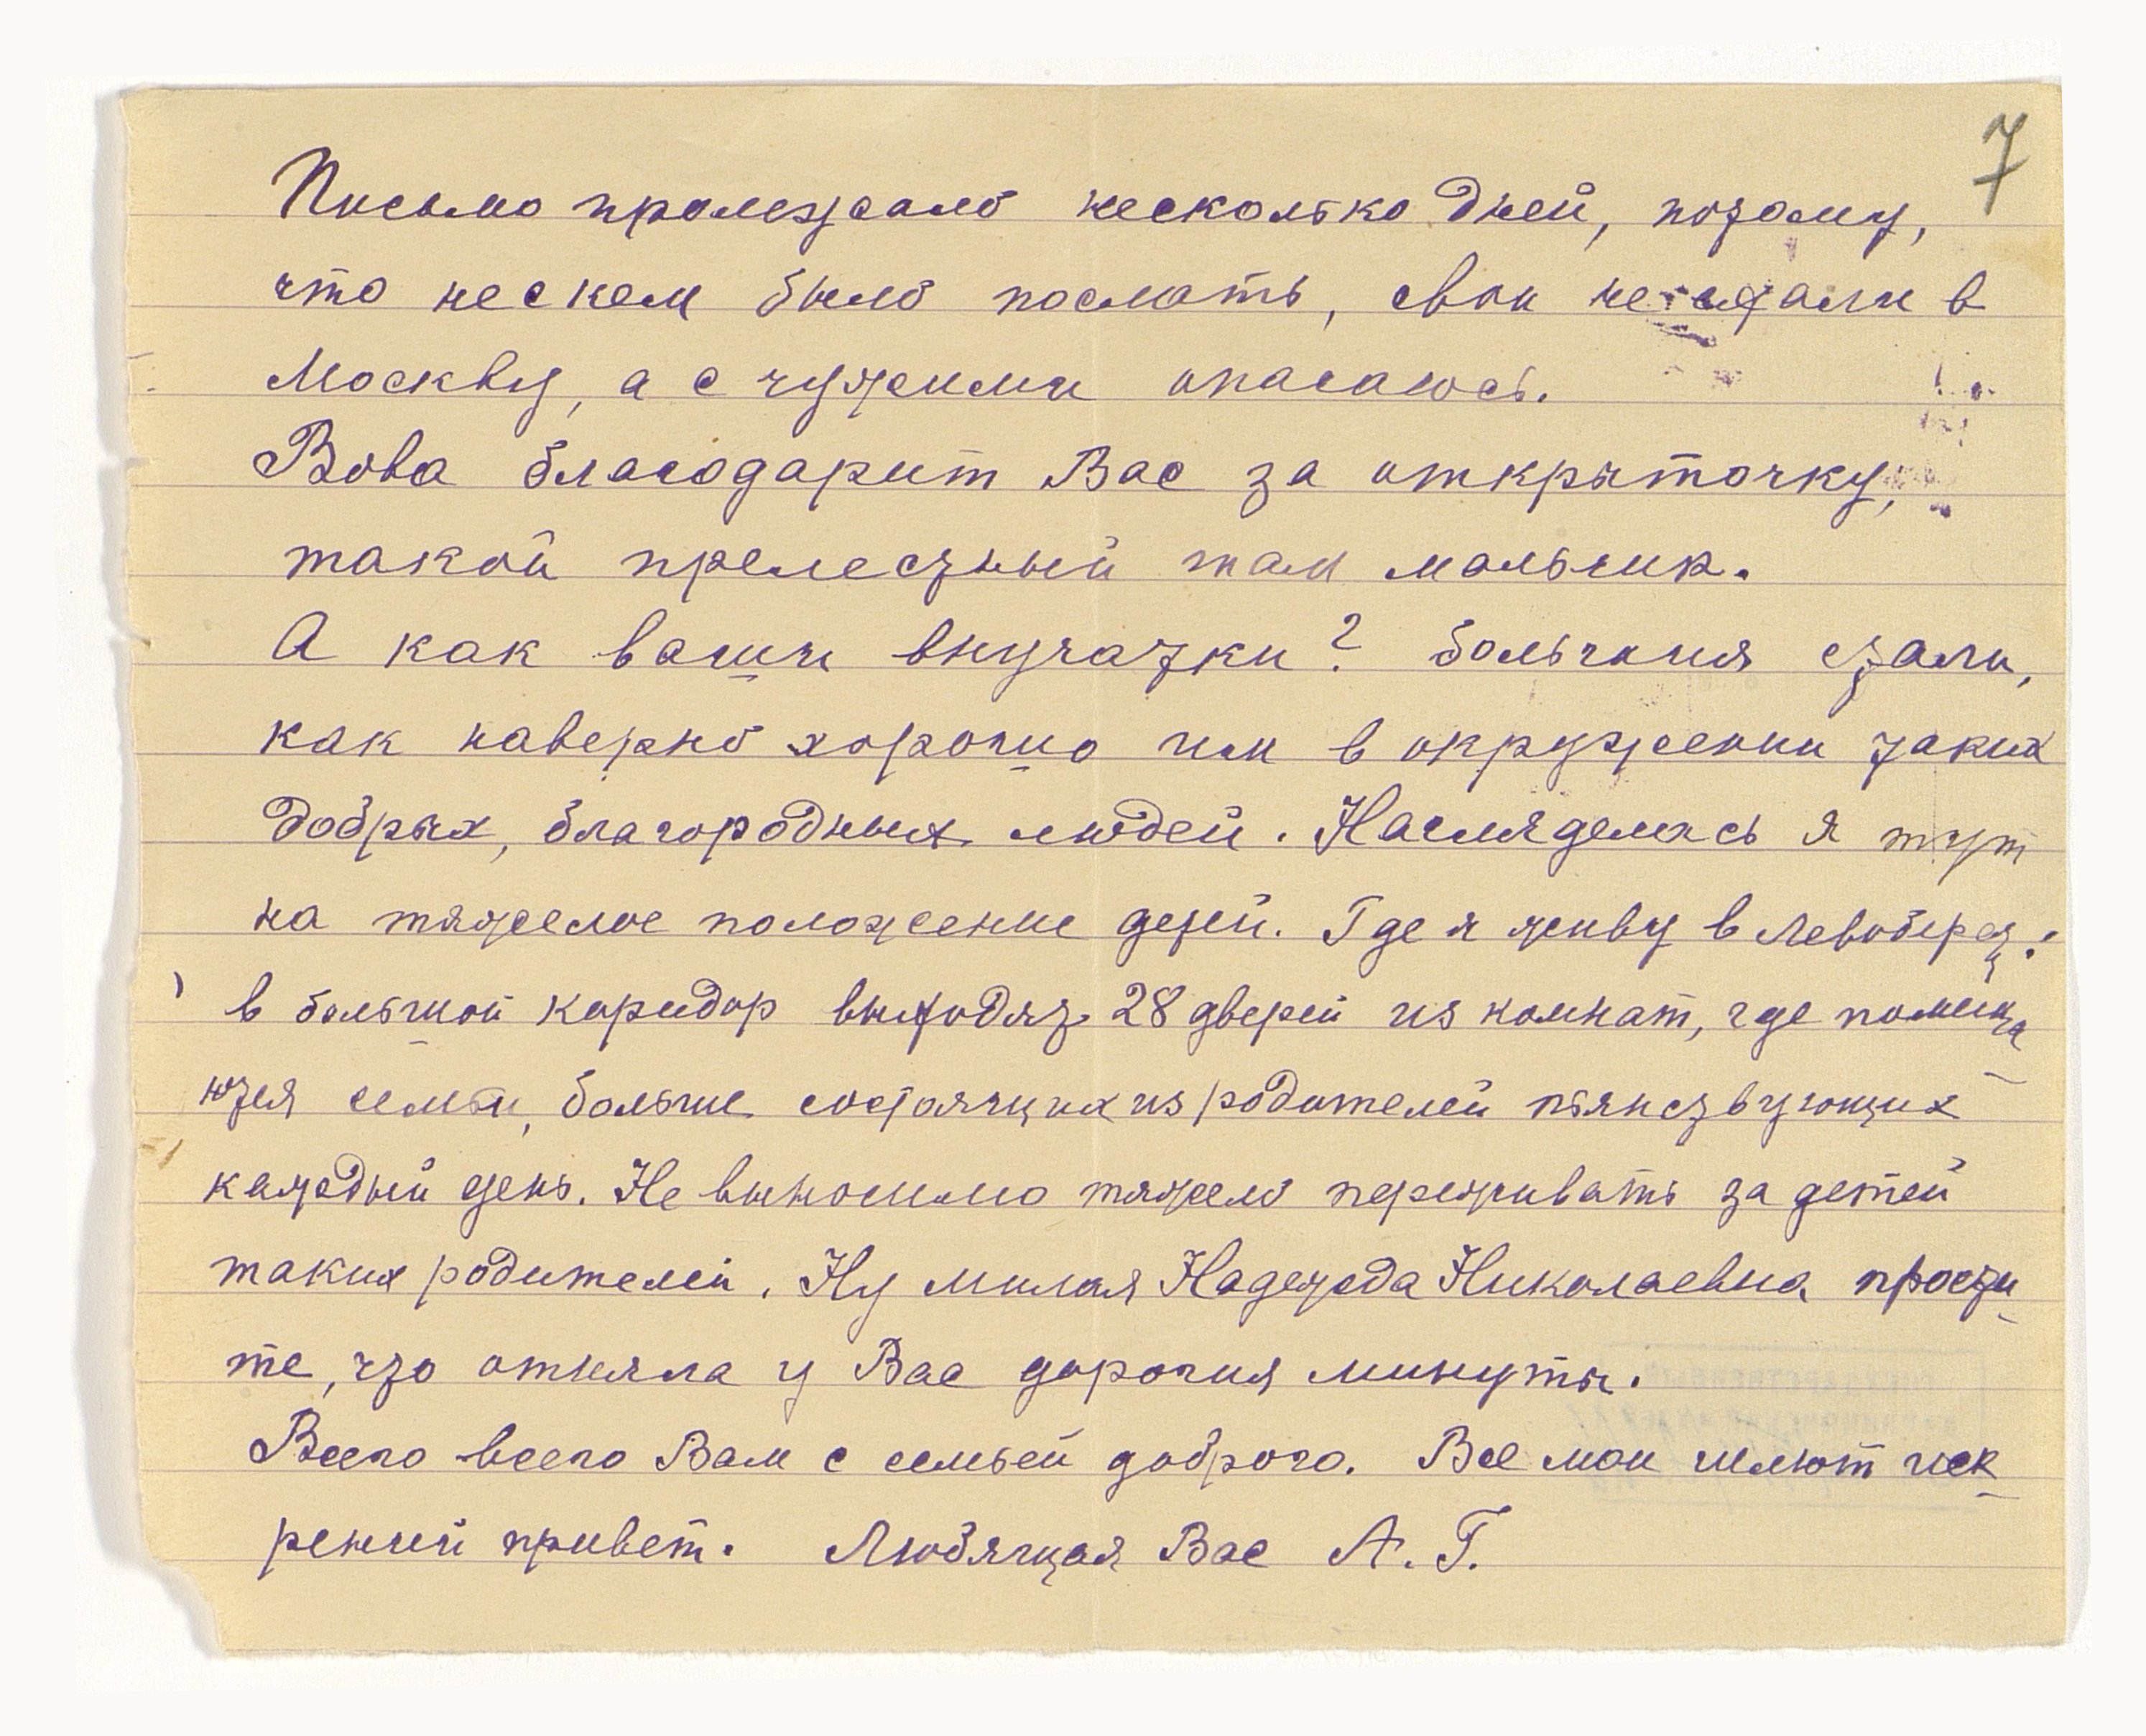 7
Письмо пролежало несколько дней, потому,
что нескем было послать, свои не ездили в
Москву, а с чужими опасаюсь.
Вова благодарит Вас за открыточку,
такой прелестный там мальчик.
А как ваши внучатки? большия стали,
как наверно хорошо им в окружении таких
добрых, благородных людей. Нагляделась я тут
на тяжелое положение детей. Где я живу в Левобереж.
в большой коридор выходят 28 дверей из комнат, где помеща
ются семьи, больше состоящих из родителей пьянствующих
каждый день. Не выносимо тяжело переживать за детей
таких родителей. Ну милая Надежда Николаевна прости
те, что отняла у Вас дорогия минуты.
Всего всего Вам с семьей доброго. Все мои шлют иск
ренний привет. Любящая Вас А. Г.